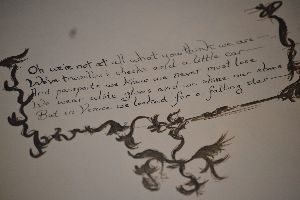 Oh we're not at all what you think we are
We've travellers checks and a little car
And passports we know we never must lose
We wear white gloves and we shine our shoes
But in Venice we looked for a falling star